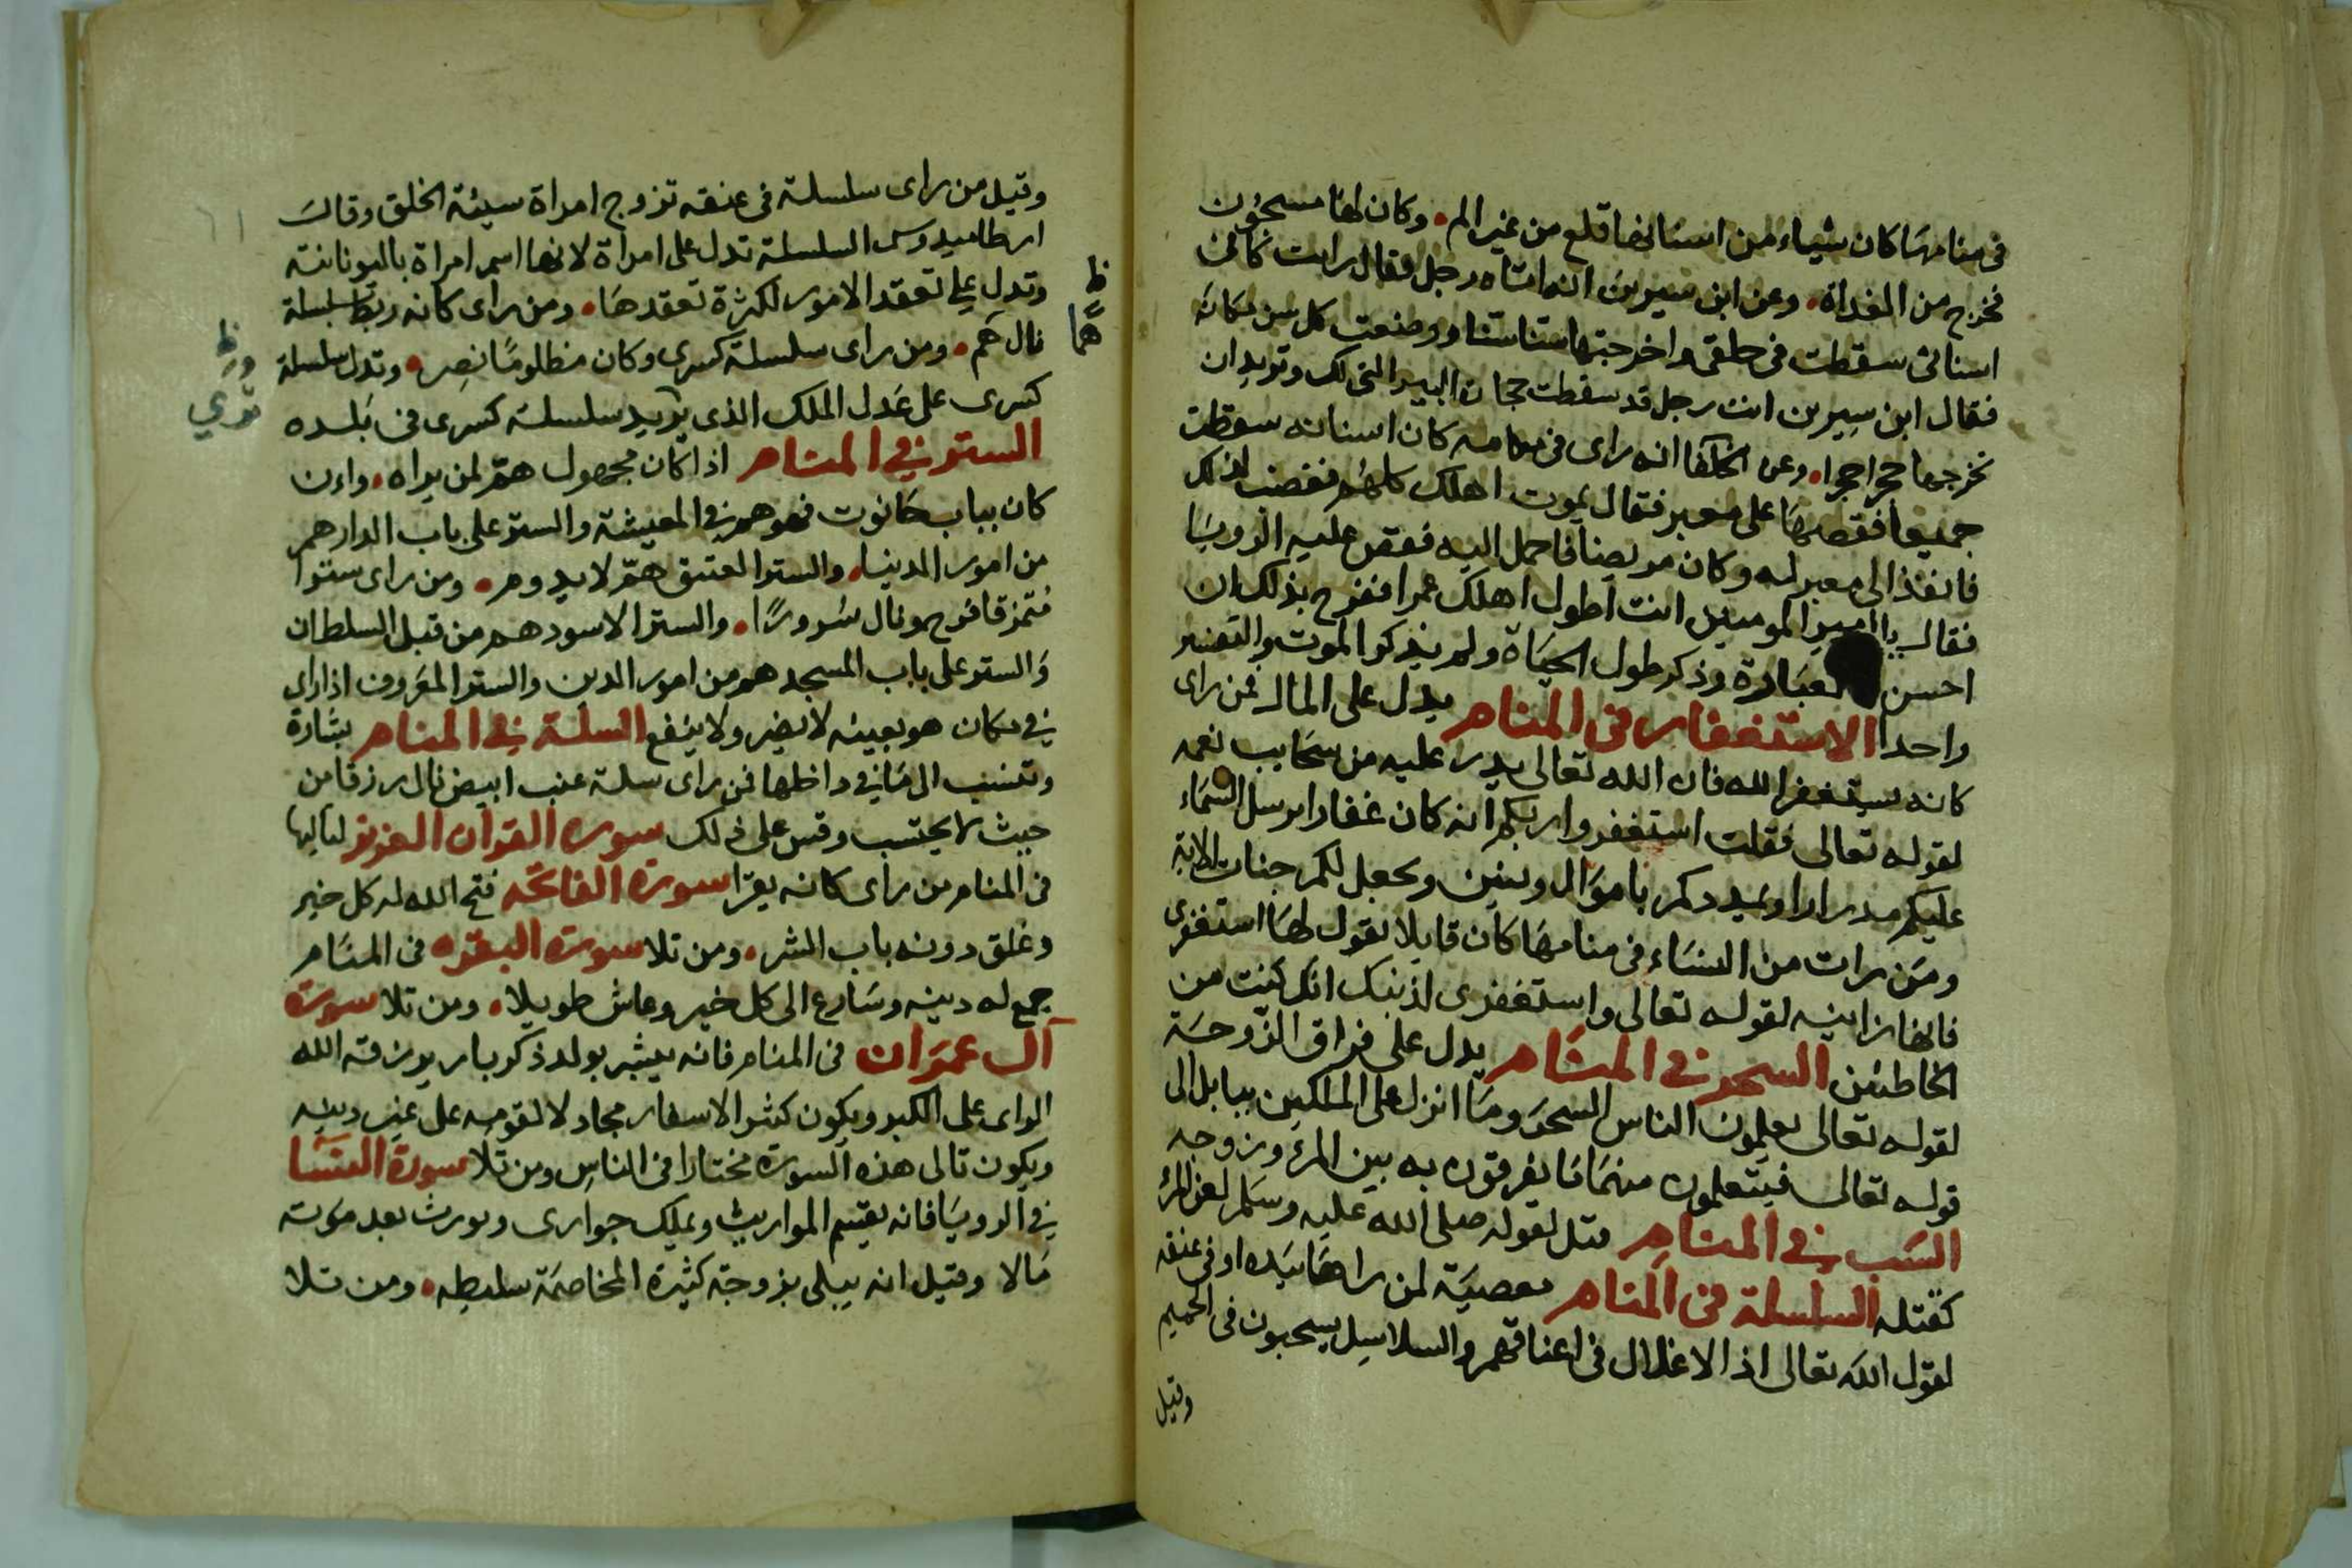 في منامها كان شياء من اسنانها قلع من غير الم • وكان لها مسجون
فخرج من الغداة • وعن ابن سيرين انه اتاه رجل فقال رايت كان
اسناني سقطت في حلقي واخرجتها سنا سنا ووضعت كل سن مكانه
فقال ابن سيرين انت رجل قد سقطت حجارة البير التي لك وتريد ان
تخرجها حجرا حجرا • وعن الخلفا انه راى في منامه كان اسنانه سقطت
جميعا فقصها على معبر فقال يموت اهلك كلهم فغضب لذلك
فانفذ الى معبر له وكان مريضا فاحمل اليه فقص عليه الرويا
فقال يا امير المومنين انت اطول اهلك عمرا ففرح بذلك ان
احسن العبارة وذكر طول الحياة ولم يذكر الموت والتفسير
واحدا الاستغفار في المنام يدل على المال فمن راى
كانه يستغفر الله فان الله تعالى يدر عليه من سحايب نعمه
لقوله تعالى فقلت استغفروا ربكم انه كان غفارا يرسل السماء
عليكم مدرارا ويمددكم باموال وبنين ويجعل لكم جنات الاية
ومن رات من النساء في منامها كان قايلا يقول لها استغفري
فانها زانيه لقوله تعالى واستغفري لذنبك انك كنت من
الخاطئين السحر في المنام يدل على فراق الزوجة
لقوله تعالى يعلمون الناس السحر وما انزل على الملكين ببابل الى
قوله تعالى فيتعلمون منهما ما يفرقون به بين المرء وزوجه
السب في المنام قتل لقوله صلى الله عليه وسلم لعن المرء
كقتله السلسلة في المنام معصية لمن راها بيده او في عنقه
لقول الله تعالى اذ الاغلال في اعناقهم والسلاسل يسحبون في الحميم
وقيل
وقيل من راى سلسلة في عنقه تزوج امراة سيئة الخلق وقال
ارطاميدوس السلسلة تدل على امراة لانها اسم امراة باليونانية
وتدل على تعقد الامور لكثرة تعقدها • ومن راى كانه ربط بسلسلة
نال هم • ومن راى سلسلة كسرى وكان مظلوما نصر • وتدل سلسلة
كسرى على عدل الملك الذي يريد سلسلة كسرى في بلده
الستر في المنام اذا كان مجهول هم لمن يراه • وان
كان بباب حانوت فهو هم في المعيشة والستر على باب الدار هم
من امور الدنيا • والستر العتيق هم لا يدوم • ومن راى سترا
متمزقا فرح ونال سرورا • والستر الاسود هم من قبل السلطان
والستر على باب المسجد هم من امور الدين والستر المعروف اذا راي
في مكان هو بعينه لا يضر ولا ينفع السلة في المنام بشارة
وتنسب الى ما في داخلها فمن راى سلة عنب ابيض نال رزقا من
حيث لا يحتسب وقس على ذلك سوره القران العزيز لتاليها
في المنام من راى كانه يقرا سورة الفاتحه فتح الله له كل خير
وغلق دونه باب الشر • ومن تلا سورة البقره في المنام
جمع له دينه وسارع الى كل خير وعاش طويلا • ومن تلا سورة
آل عمران في المنام فانه يبشر بولد ذكر بار يرزقه الله
الراى على الكبر ويكون كثير الاسفار مجادلا لقومه على غير دينه
ويكون تالى هذه السورة مختارا في الناس ومن تلا سورة النسا
في الرويا فانه يقسم المواريث ويملك جوارى ويورث بعد موته
مالا وقيل انه يبلى بزوجة كثيرة المخاصمة سليطه • ومن تلا
ظ
هما
ظ
٦١